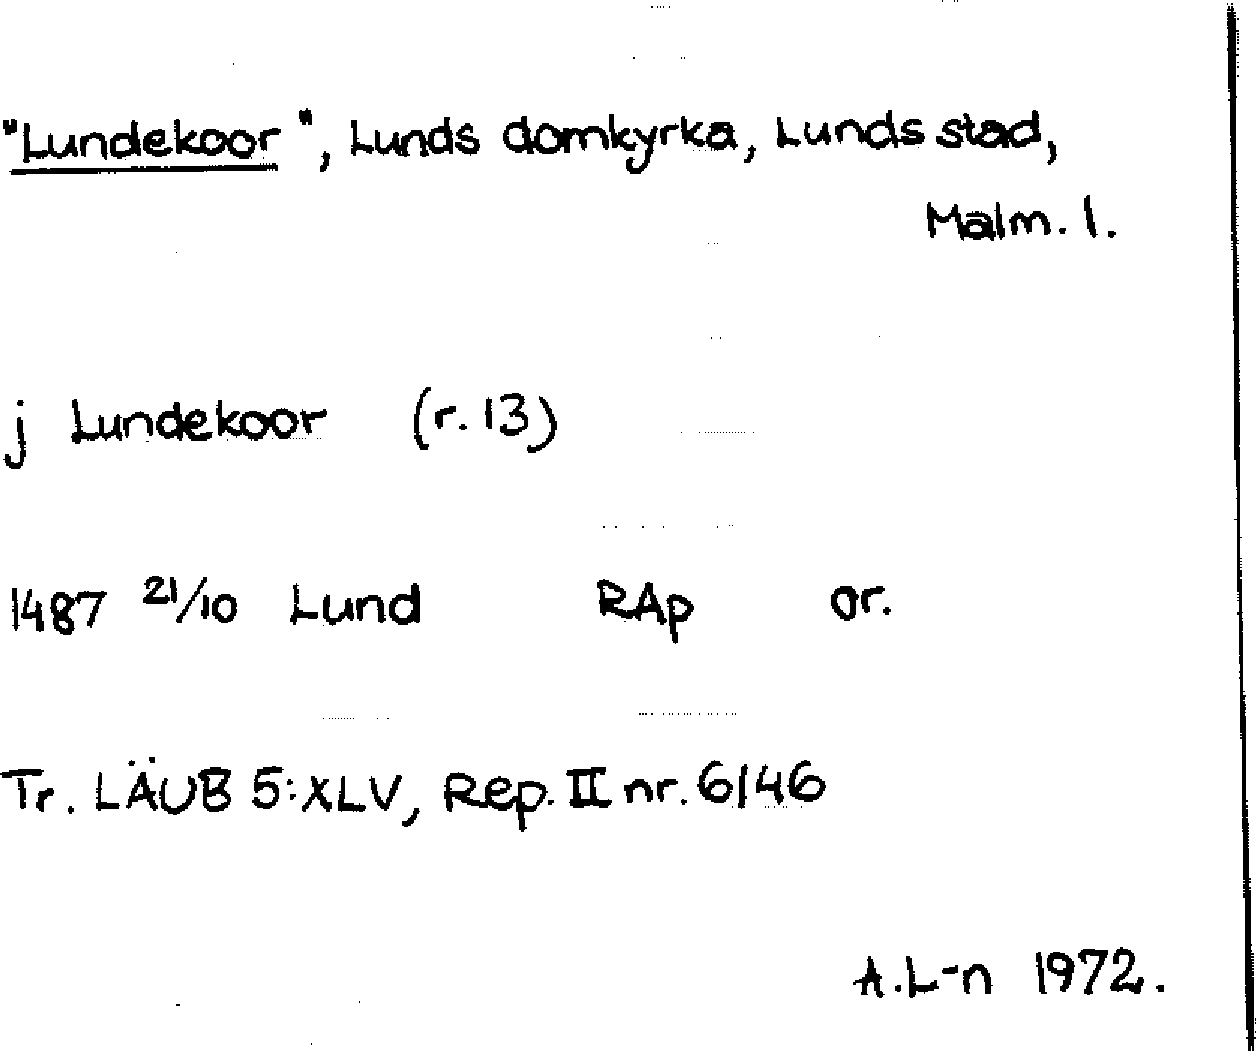 "Lundekoor", Lunds domkyrka, Lunds stad,
Malm. l.
j Lundekoor (r. 13)
1487 21/10 Lund RAp or.
Tr. LÄUB 5:XLV, Rep. II nr. 6146
A.L-n 1972.